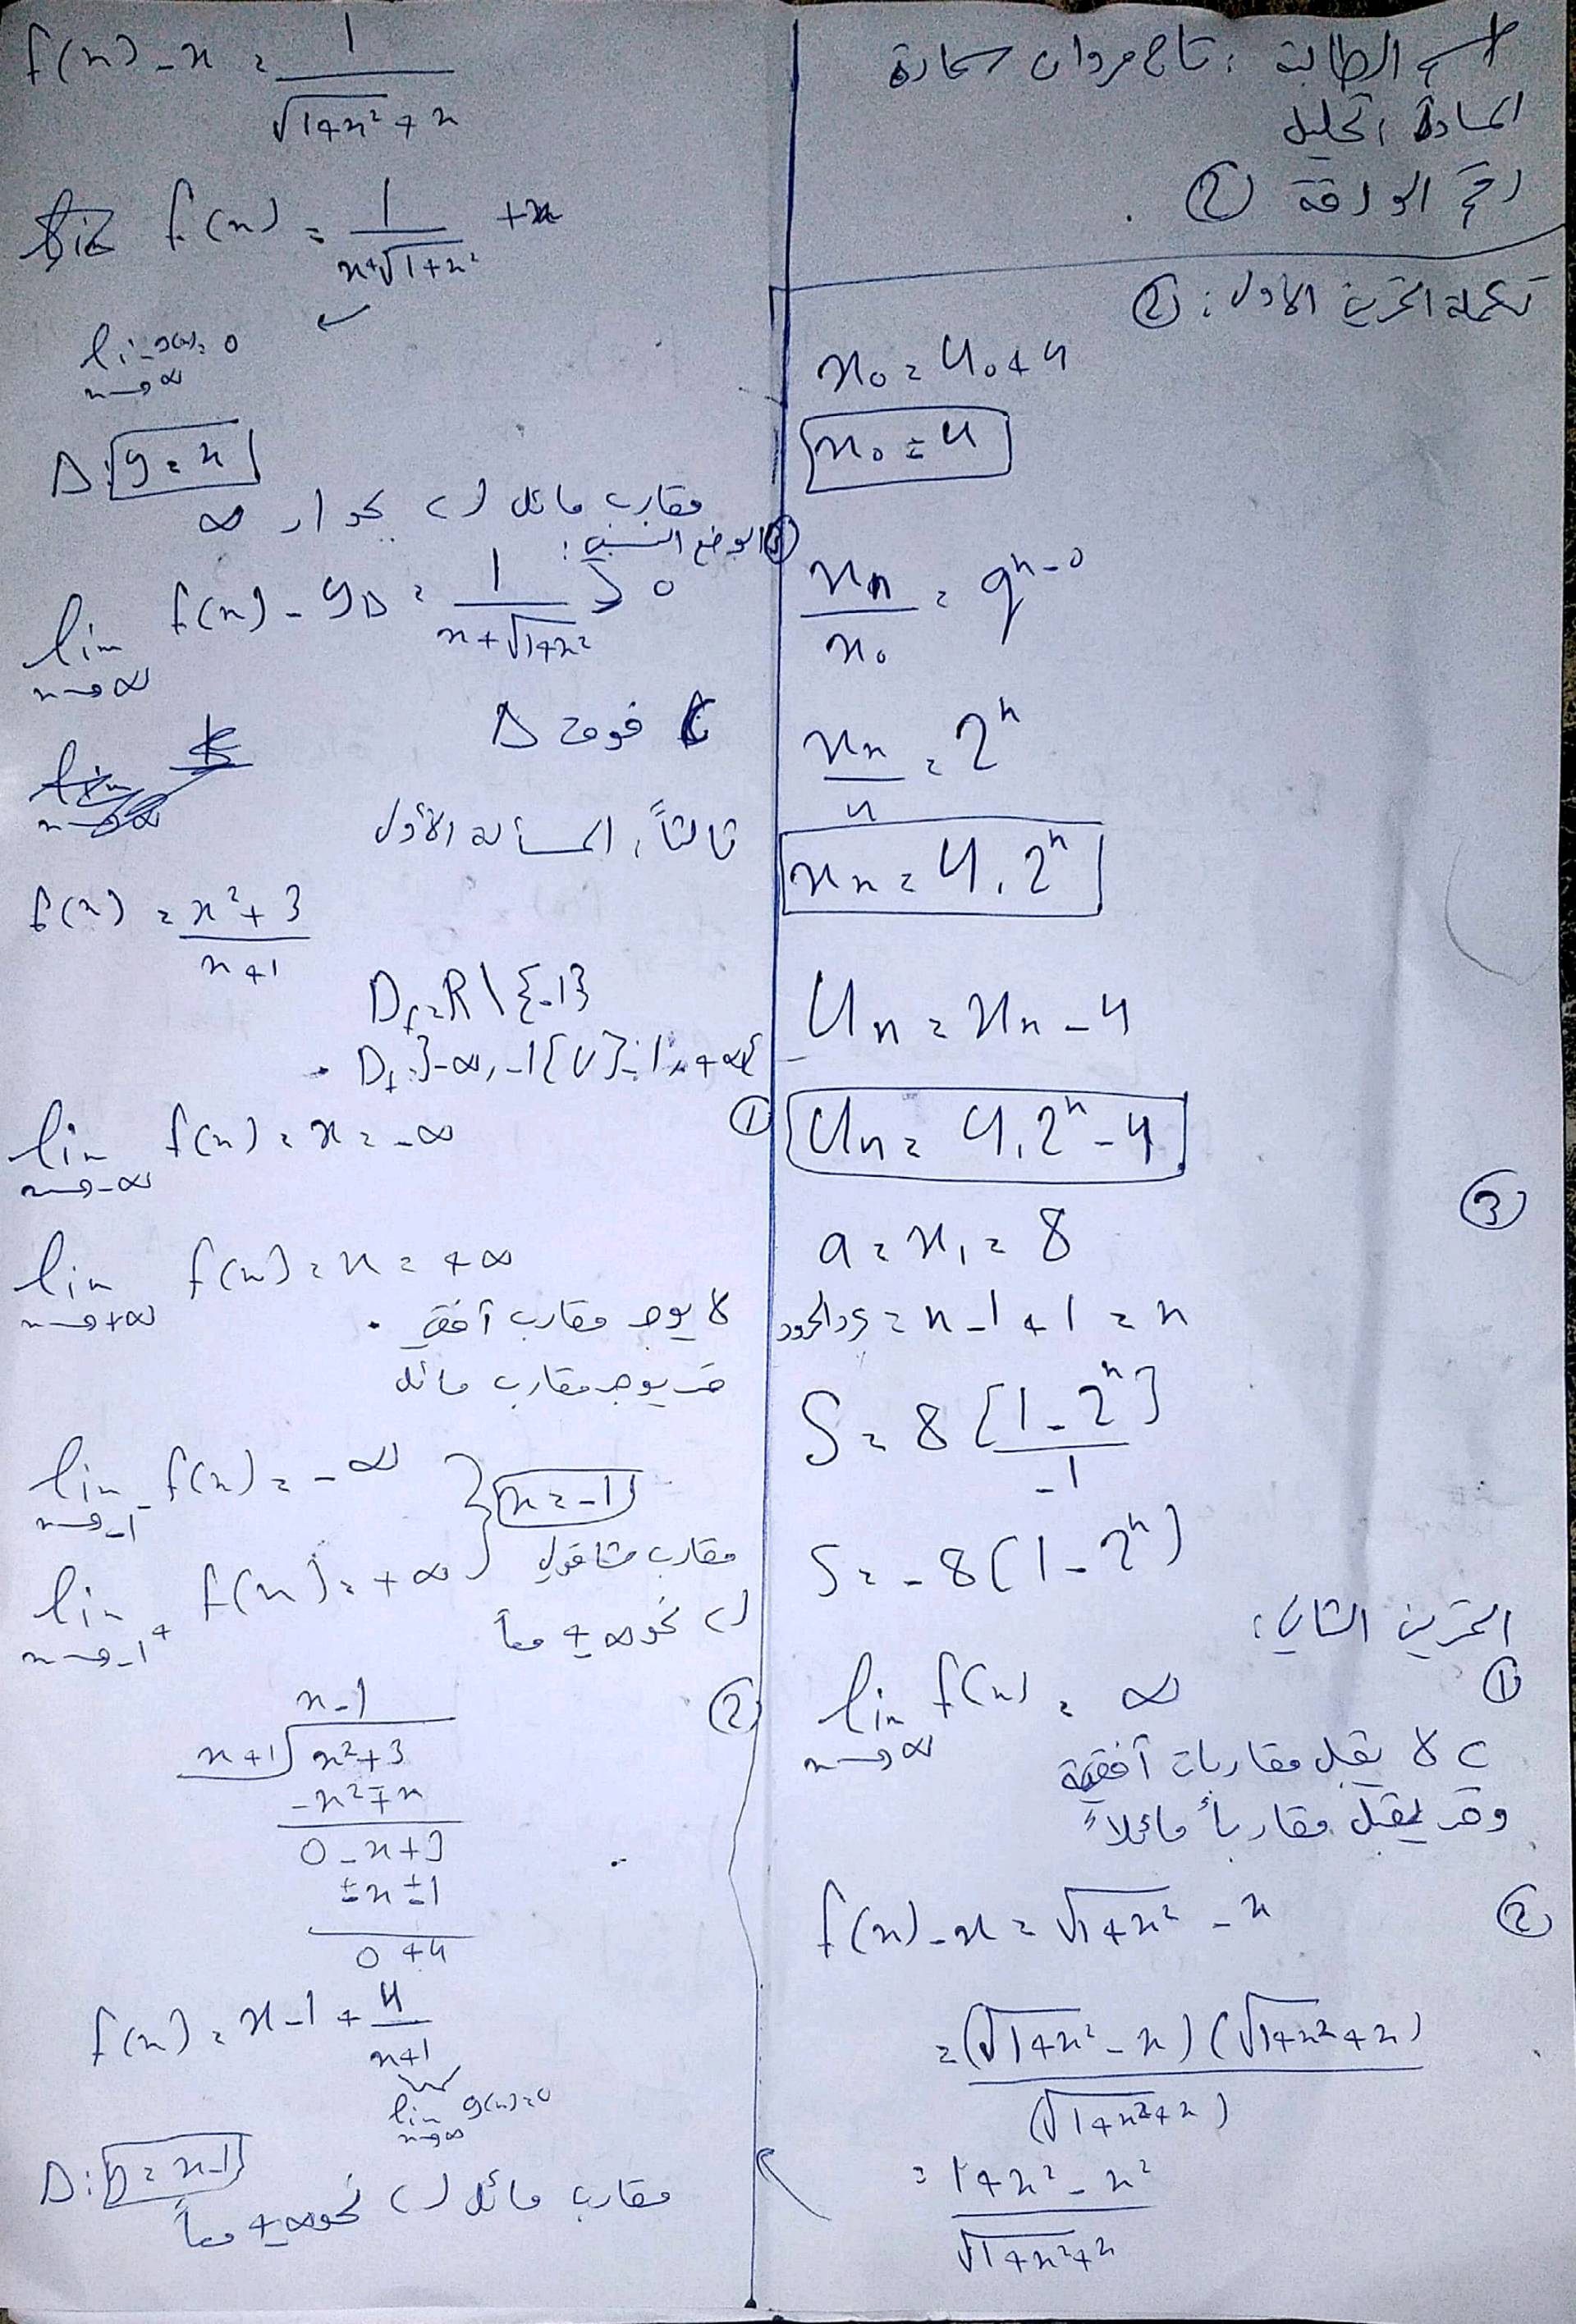 اسم الطالبة : تاج مروان سعادة
المادة : تحليل
رقم الورقة (2)
تكملة التمرين الاول : (2)
x₀ = u₀ + 4
x₀ = 4
xₙ / x₀ = qⁿ⁻⁰
xₙ / 4 = 2ⁿ
xₙ = 4.2ⁿ
uₙ = xₙ - 4
uₙ = 4.2ⁿ - 4
(3)
a = x₁ = 8
عدد الحدود = n - 1 + 1 = n
S = 8 [1 - 2ⁿ] / -1
S = -8 (1 - 2ⁿ)
التمرين الثاني :
(1) lim f(x) = ∞
x→∞
C لا يقبل مقاربات أفقية
وقد يقبل مقارباً مائلاً
(2) f(x) - x = √1+x² - x
= (√1+x² - x) (√1+x² + x) / (√1+x² + x)
= 1+x² - x² / √1+x² + x
f(x) - x = 1 / √1+x² + x
f(x) = 1 / x+√1+x² + x
lim g(x) = 0
x→∞
Δ: y = x
مقارب مائل لـ C بجوار ∞
(3) الوضع النسبي :
lim f(x) - yΔ = 1 / x+√1+x² > 0
x→∞
C فوق Δ
ثالثاً : المسألة الأولى
f(x) = x²+3 / x+1
D_f = R \ {-1}
D_f = ]-∞, -1[ U ]-1, +∞[
(1) lim f(x) = x = -∞
x→-∞
lim f(x) = x = +∞
x→+∞
لا يوجد مقارب أفقي
قد يوجد مقارب مائل
lim f(x) = -∞
x→-1⁻
x = -1
lim f(x) = +∞
x→-1⁺
مقارب شاقولي
لـ C نحو ∞± معاً
(2)
x-1
x+1 √ x²+3
-x² ∓ x
0 - x + 3
±x ± 1
0 + 4
f(x) = x-1 + 4 / x+1
lim g(x) = 0
x→∞
Δ: y = x-1
مقارب مائل لـ C نحو ∞± معاً